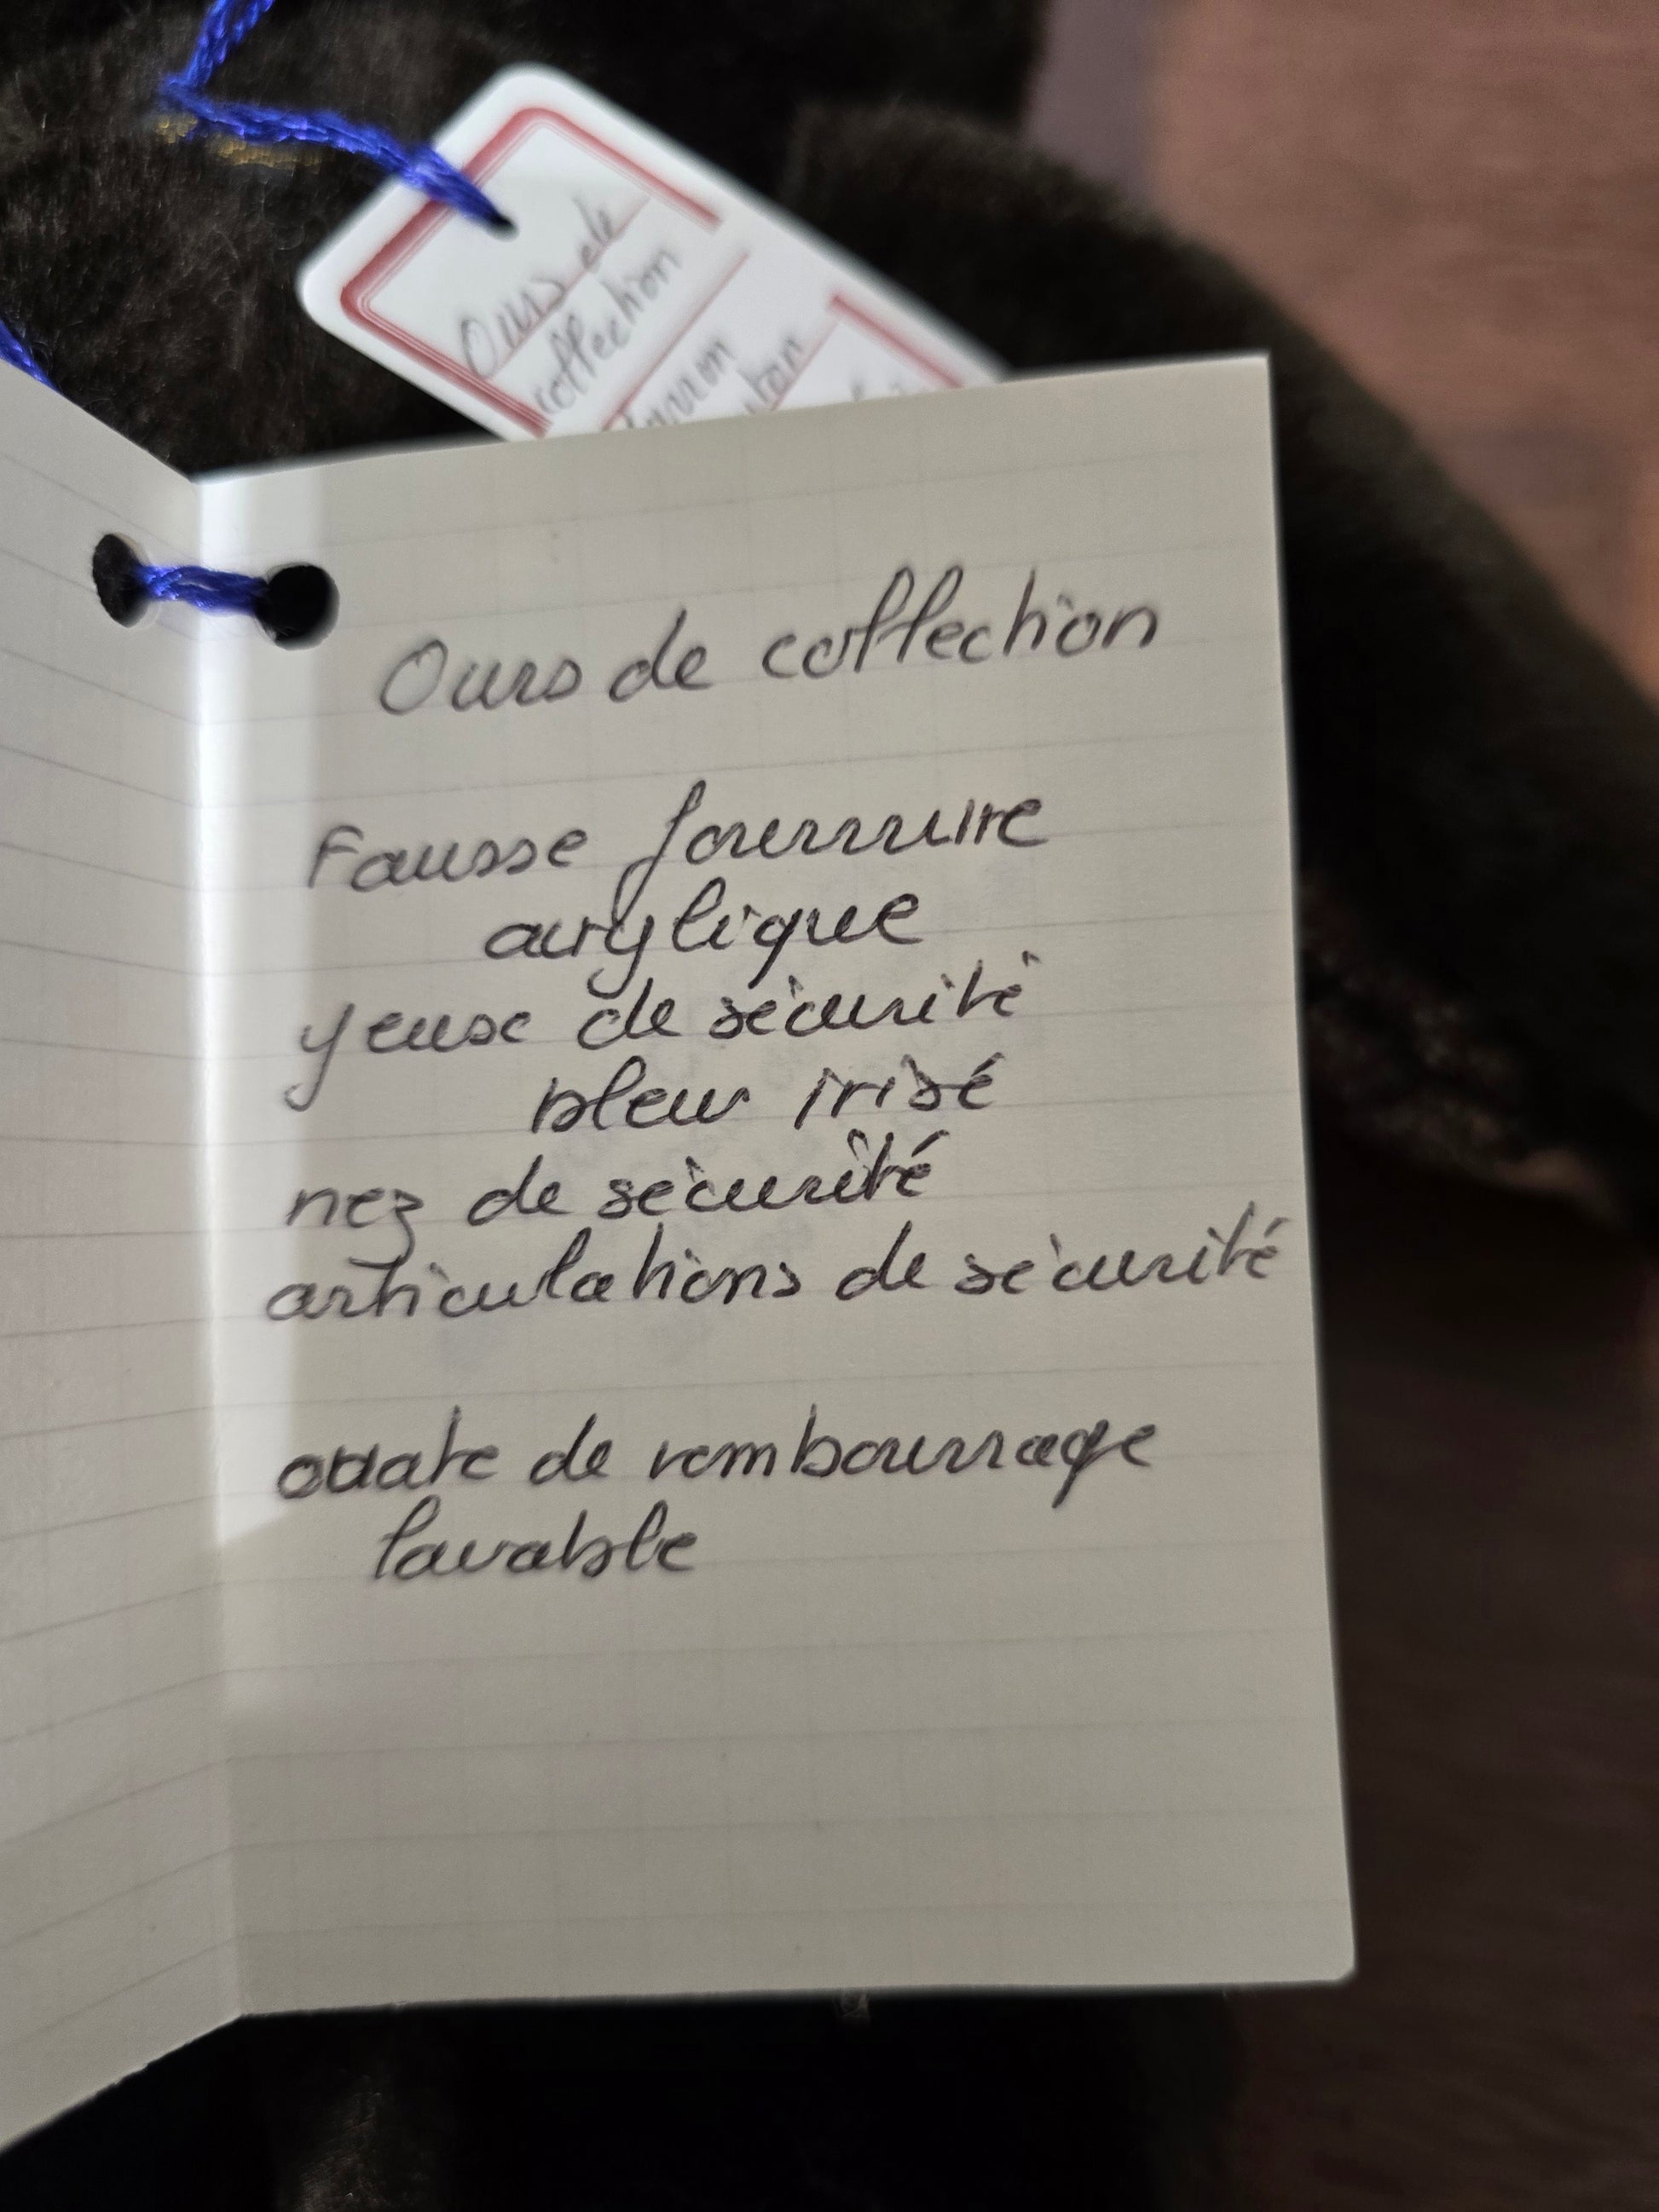 Ours de
collection
Ours de collection
Fausse fourrure
acrylique
yeuse de sécurité
bleu irisé
nez de sécurité
articulations de sécurité
ouate de rembourrage
lavable